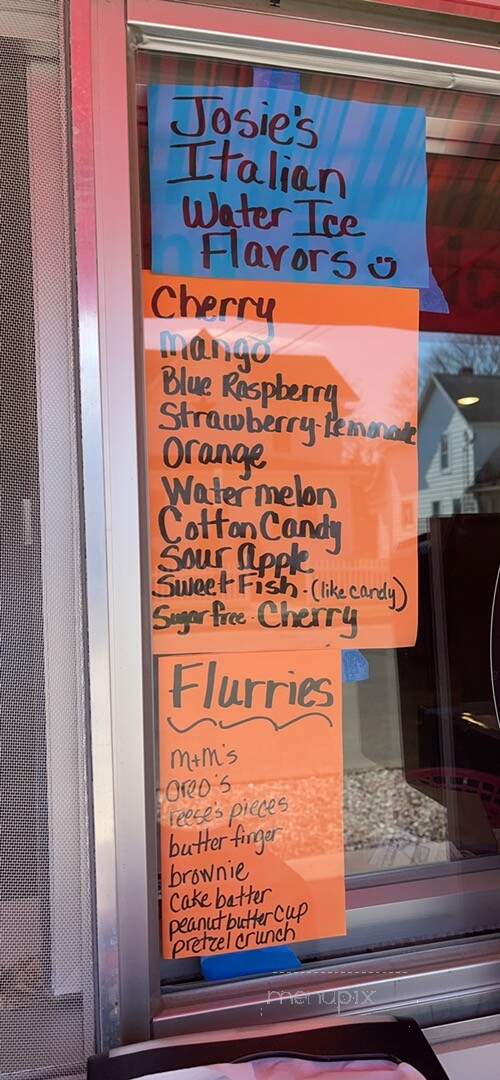 Josie's
Italian
Water Ice
Flavors
Cherry
Mango
Blue Raspberry
Strawberry-Lemonade
Orange
Watermelon
Cotton Candy
Sour Apple
Sweet Fish - (like candy)
Sugar free - Cherry
Flurries
m+m's
oreo's
reese's pieces
butter finger
brownie
Cake batter
peanut butter cup
pretzel crunch
menupix